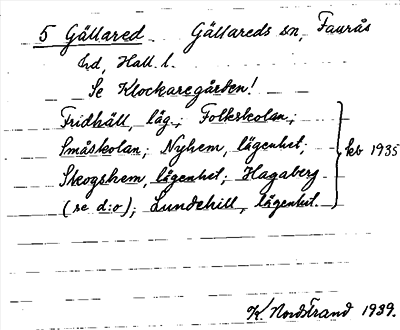 5 Gällared Gällareds sn, Faurås
hd, Hall. l.
Se Klockaregården!
Fridhäll, läg.; Folkskolan;
Småskolan; Nyhem, lägenhet;
Skogshem, lägenhet; Hagaberg
(se d:o); Lundehill, lägenhet.
kb 1935
K. Nordstrand 1939.